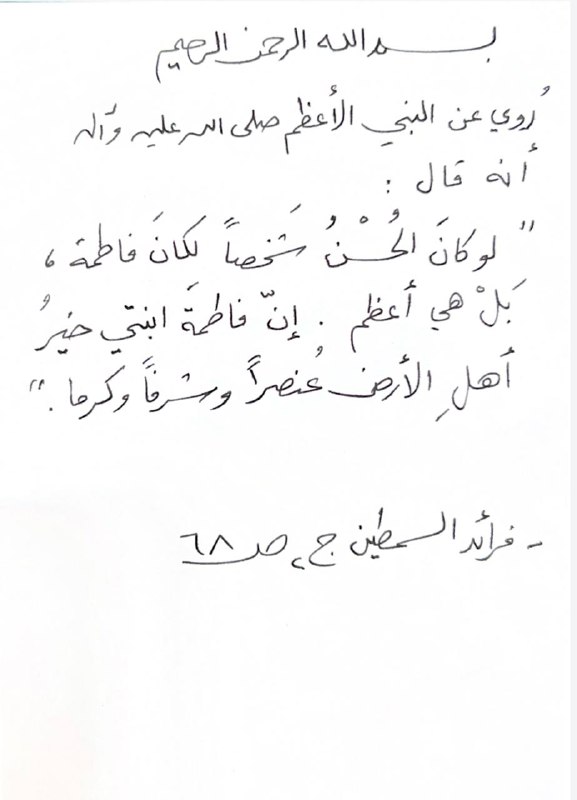 بسم الله الرحمن الرحيم
رُوي عن النبي الأعظم صلى الله عليه وآله
أنه قال :
" لو كانَ الحُسْنُ شَخصاً لكانَ فاطمة ،
بَلْ هي أعظم . إنّ فاطمةَ ابنتي خيرُ
أهلِ الأرض عُنصراً وشرفاً وكرما . "
- فرائد السمطين ج٢ ص ٦٨